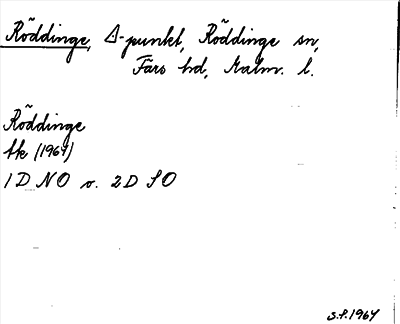 Röddinge, △-punkt, Röddinge sn,
Färs hd, Malm. l.
Röddinge
tk (1967)
1 D NO o. 2D SO
S.P. 1967